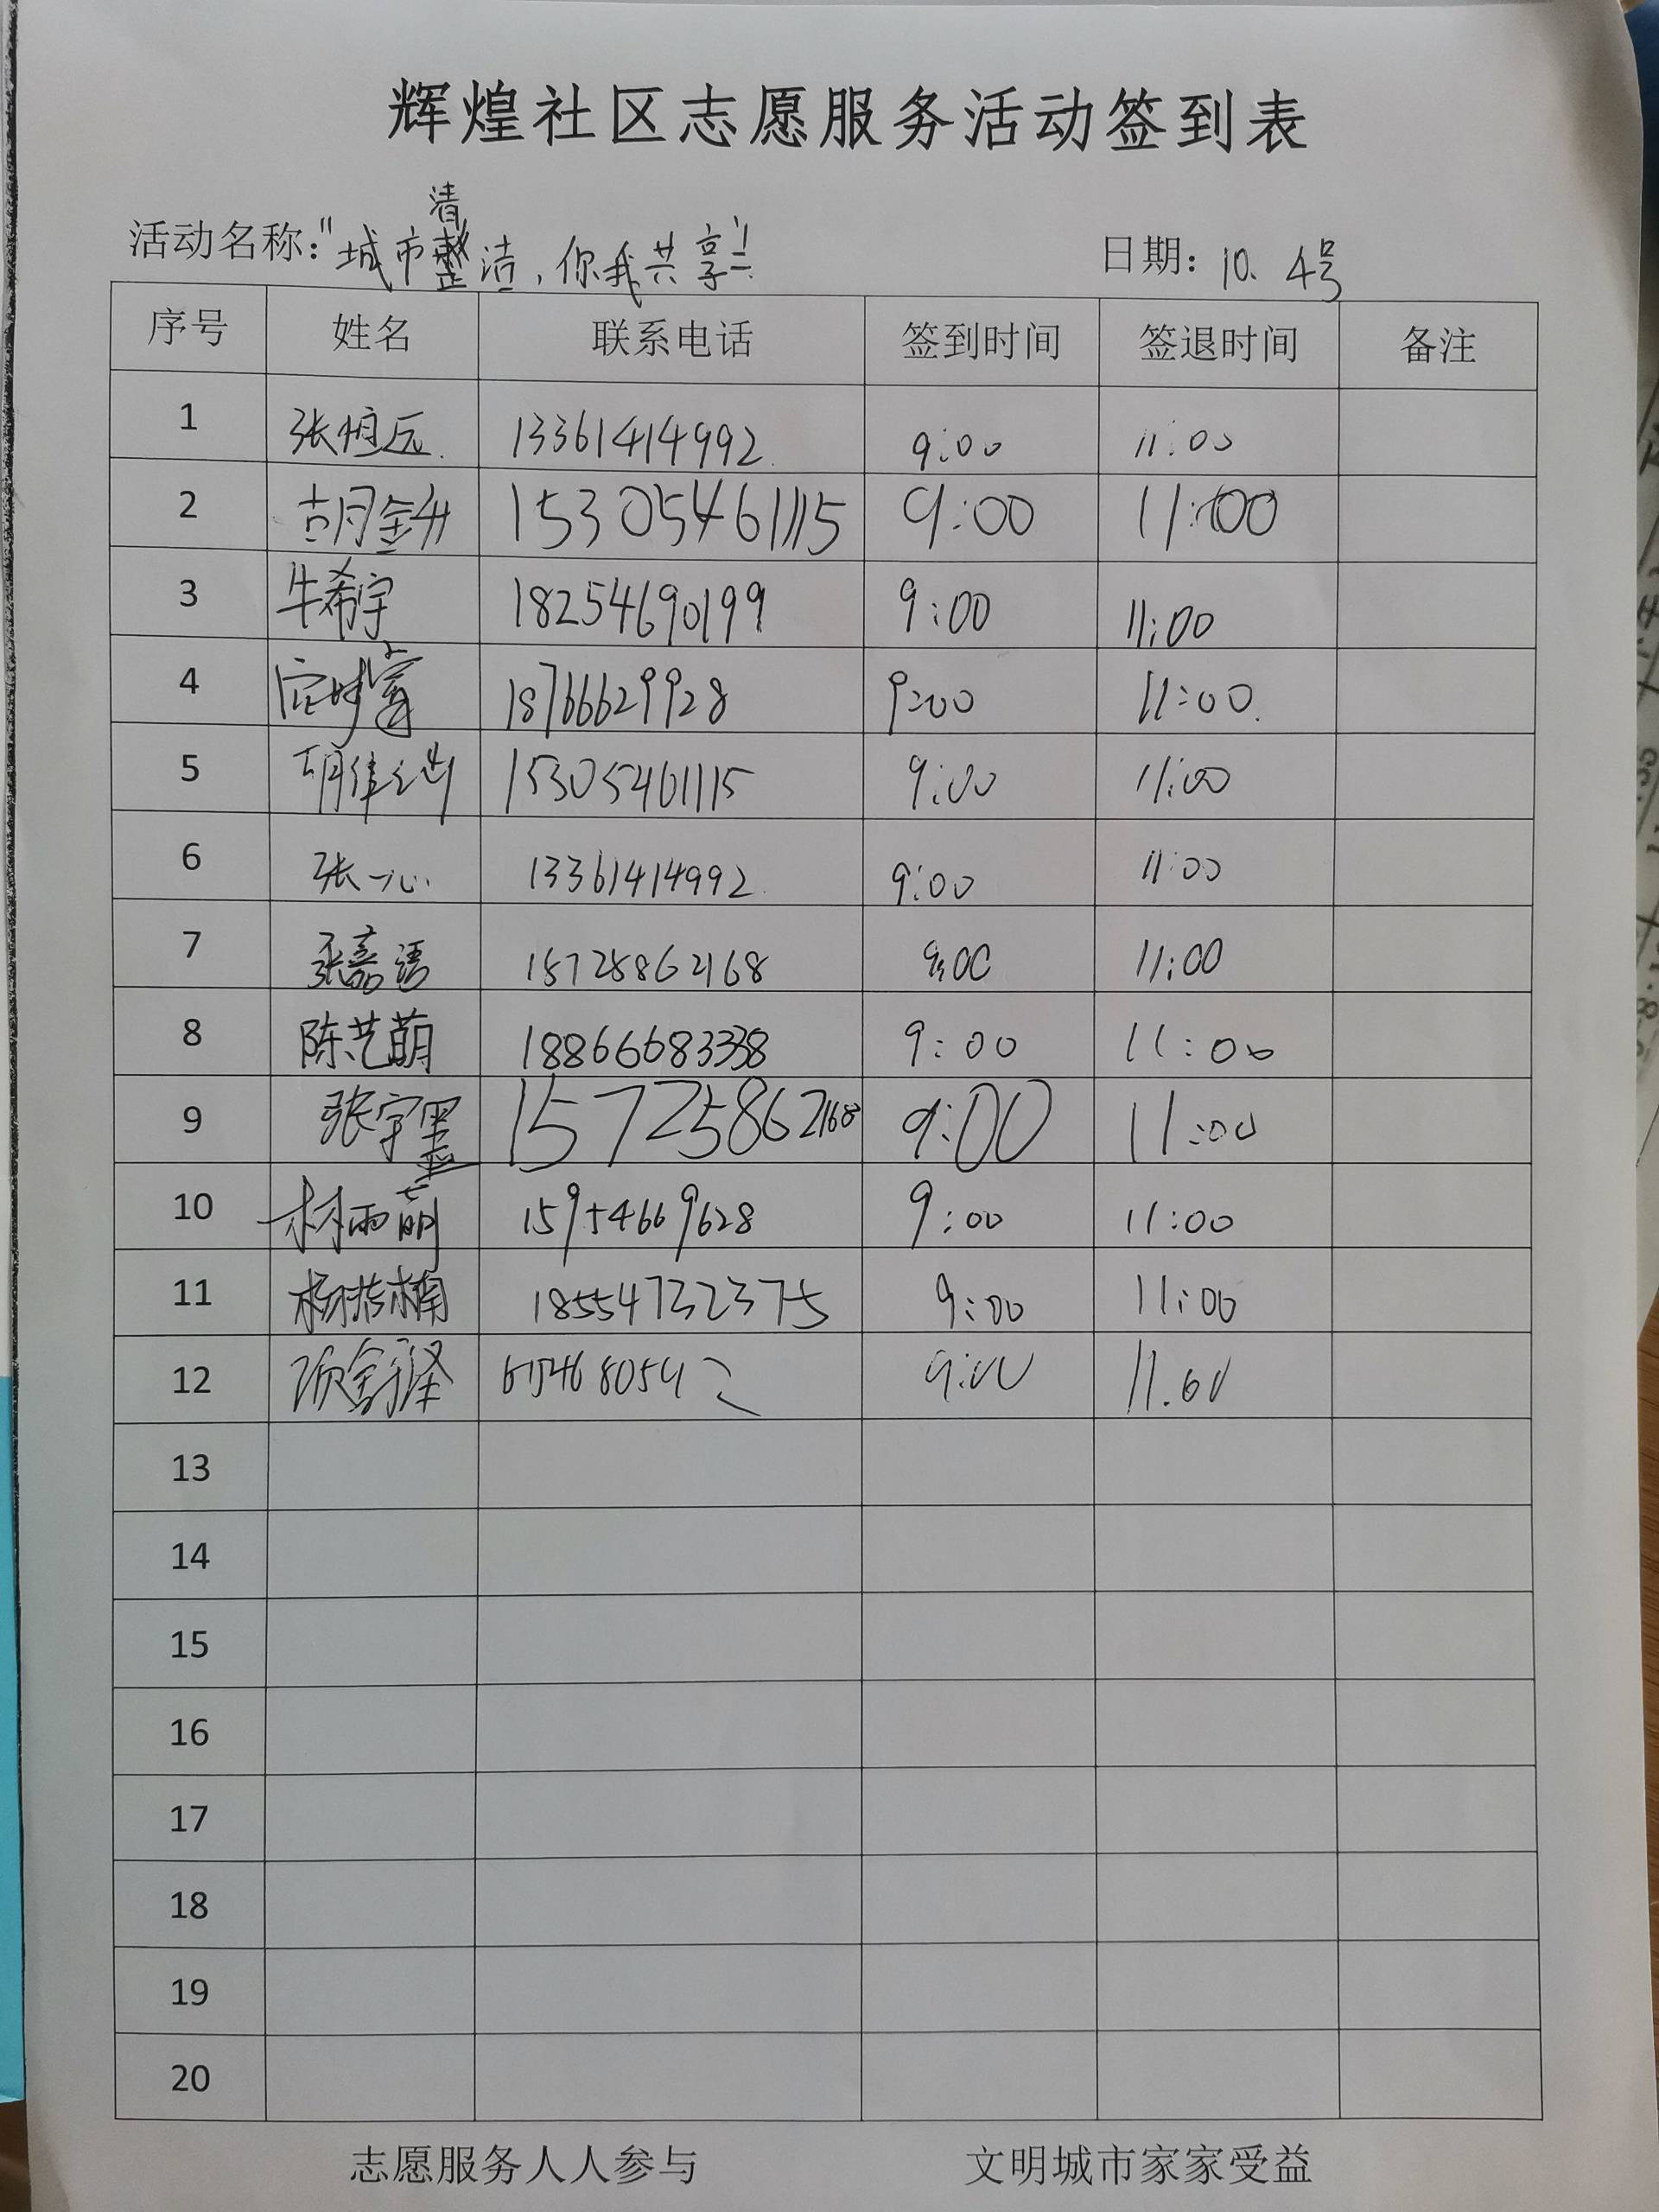 辉煌社区志愿服务活动签到表
活动名称:"城市清洁,你我共享" 日期: 10. 4号
序号 姓名 联系电话 签到时间 签退时间 备注
1 张恒远 13361414992 9:00 11:00
2 胡金升 15305461115 9:00 11:00
3 牛希宇 18254690199 9:00 11:00
4 18766629928 9:00 11:00
5 15305461115 9:00 11:00
6 张一心 13361414992 9:00 11:00
7 张嘉语 15725862168 9:00 11:00
8 陈艺萌 18866683338 9:00 11:00
9 张宇墨 15725862168 9:00 11:00
10 林雨萌 15954669628 9:00 11:00
11 18554732375 9:00 11:00
12 9:00
13
14
15
16
17
18
19
20
志愿服务人人参与 文明城市家家受益